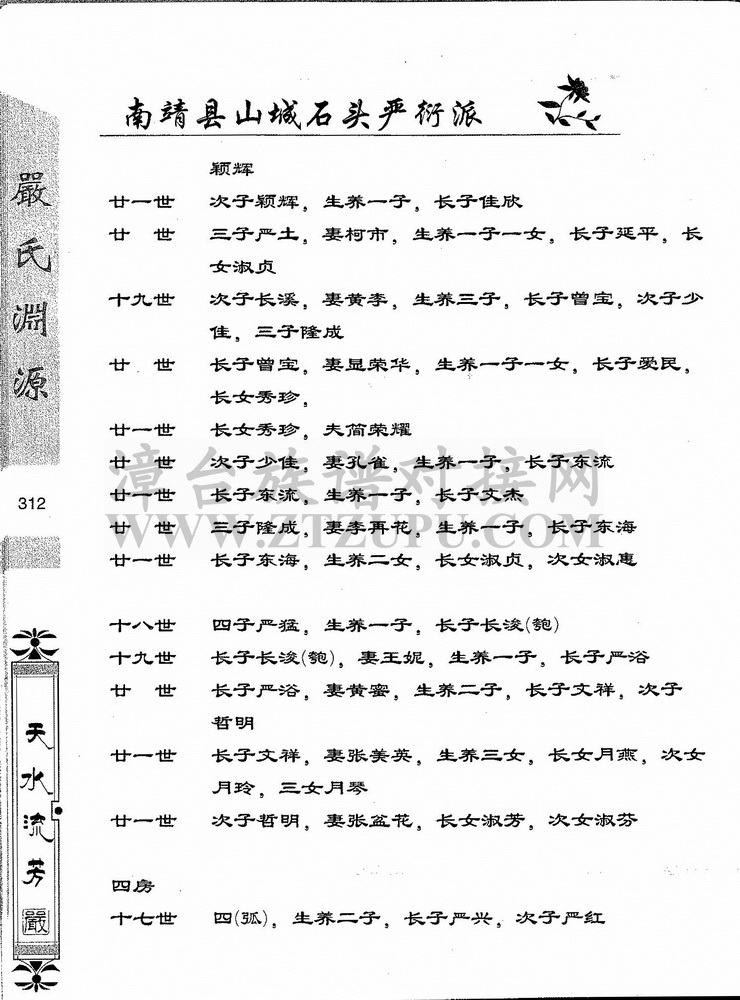 南靖县山城石头严衍派
颖辉
廿一世 次子颖辉，生养一子，长子佳欣
廿 世 三子严土，妻柯市，生养一子一女，长子延平，长
女淑贞
十九世 次子长溪，妻黄李，生养三子，长子曾宝，次子少
佳，三子隆成
廿 世 长子曾宝，妻显荣华，生养一子一女，长子爱民，
长女秀珍，
廿一世 长女秀珍，夫简荣耀
廿 世 次子少佳，妻孔雀，生养一子，长子东流
廿一世 长子东流，生养一子，长子文杰
廿 世 三子隆成，妻李再花，生养一子，长子东海
廿一世 长子东海，生养二女，长女淑贞，次女淑惠
十八世 四子严猛，生养一子，长子长浚(匏)
十九世 长子长浚(匏)，妻王妮，生养一子，长子严浴
廿 世 长子严浴，妻黄蜜，生养二子，长子文祥，次子
哲明
廿一世 长子文祥，妻张美英，生养三女，长女月燕，次女
月玲，三女月琴
廿一世 次子哲明，妻张盆花，长女淑芳，次女淑芬
四房
十七世 四(弧)，生养二子，长子严兴，次子严红
嚴氏淵源
312
天水流芳
嚴
漳台族谱对接网
WWW.ZTZUPU.COM